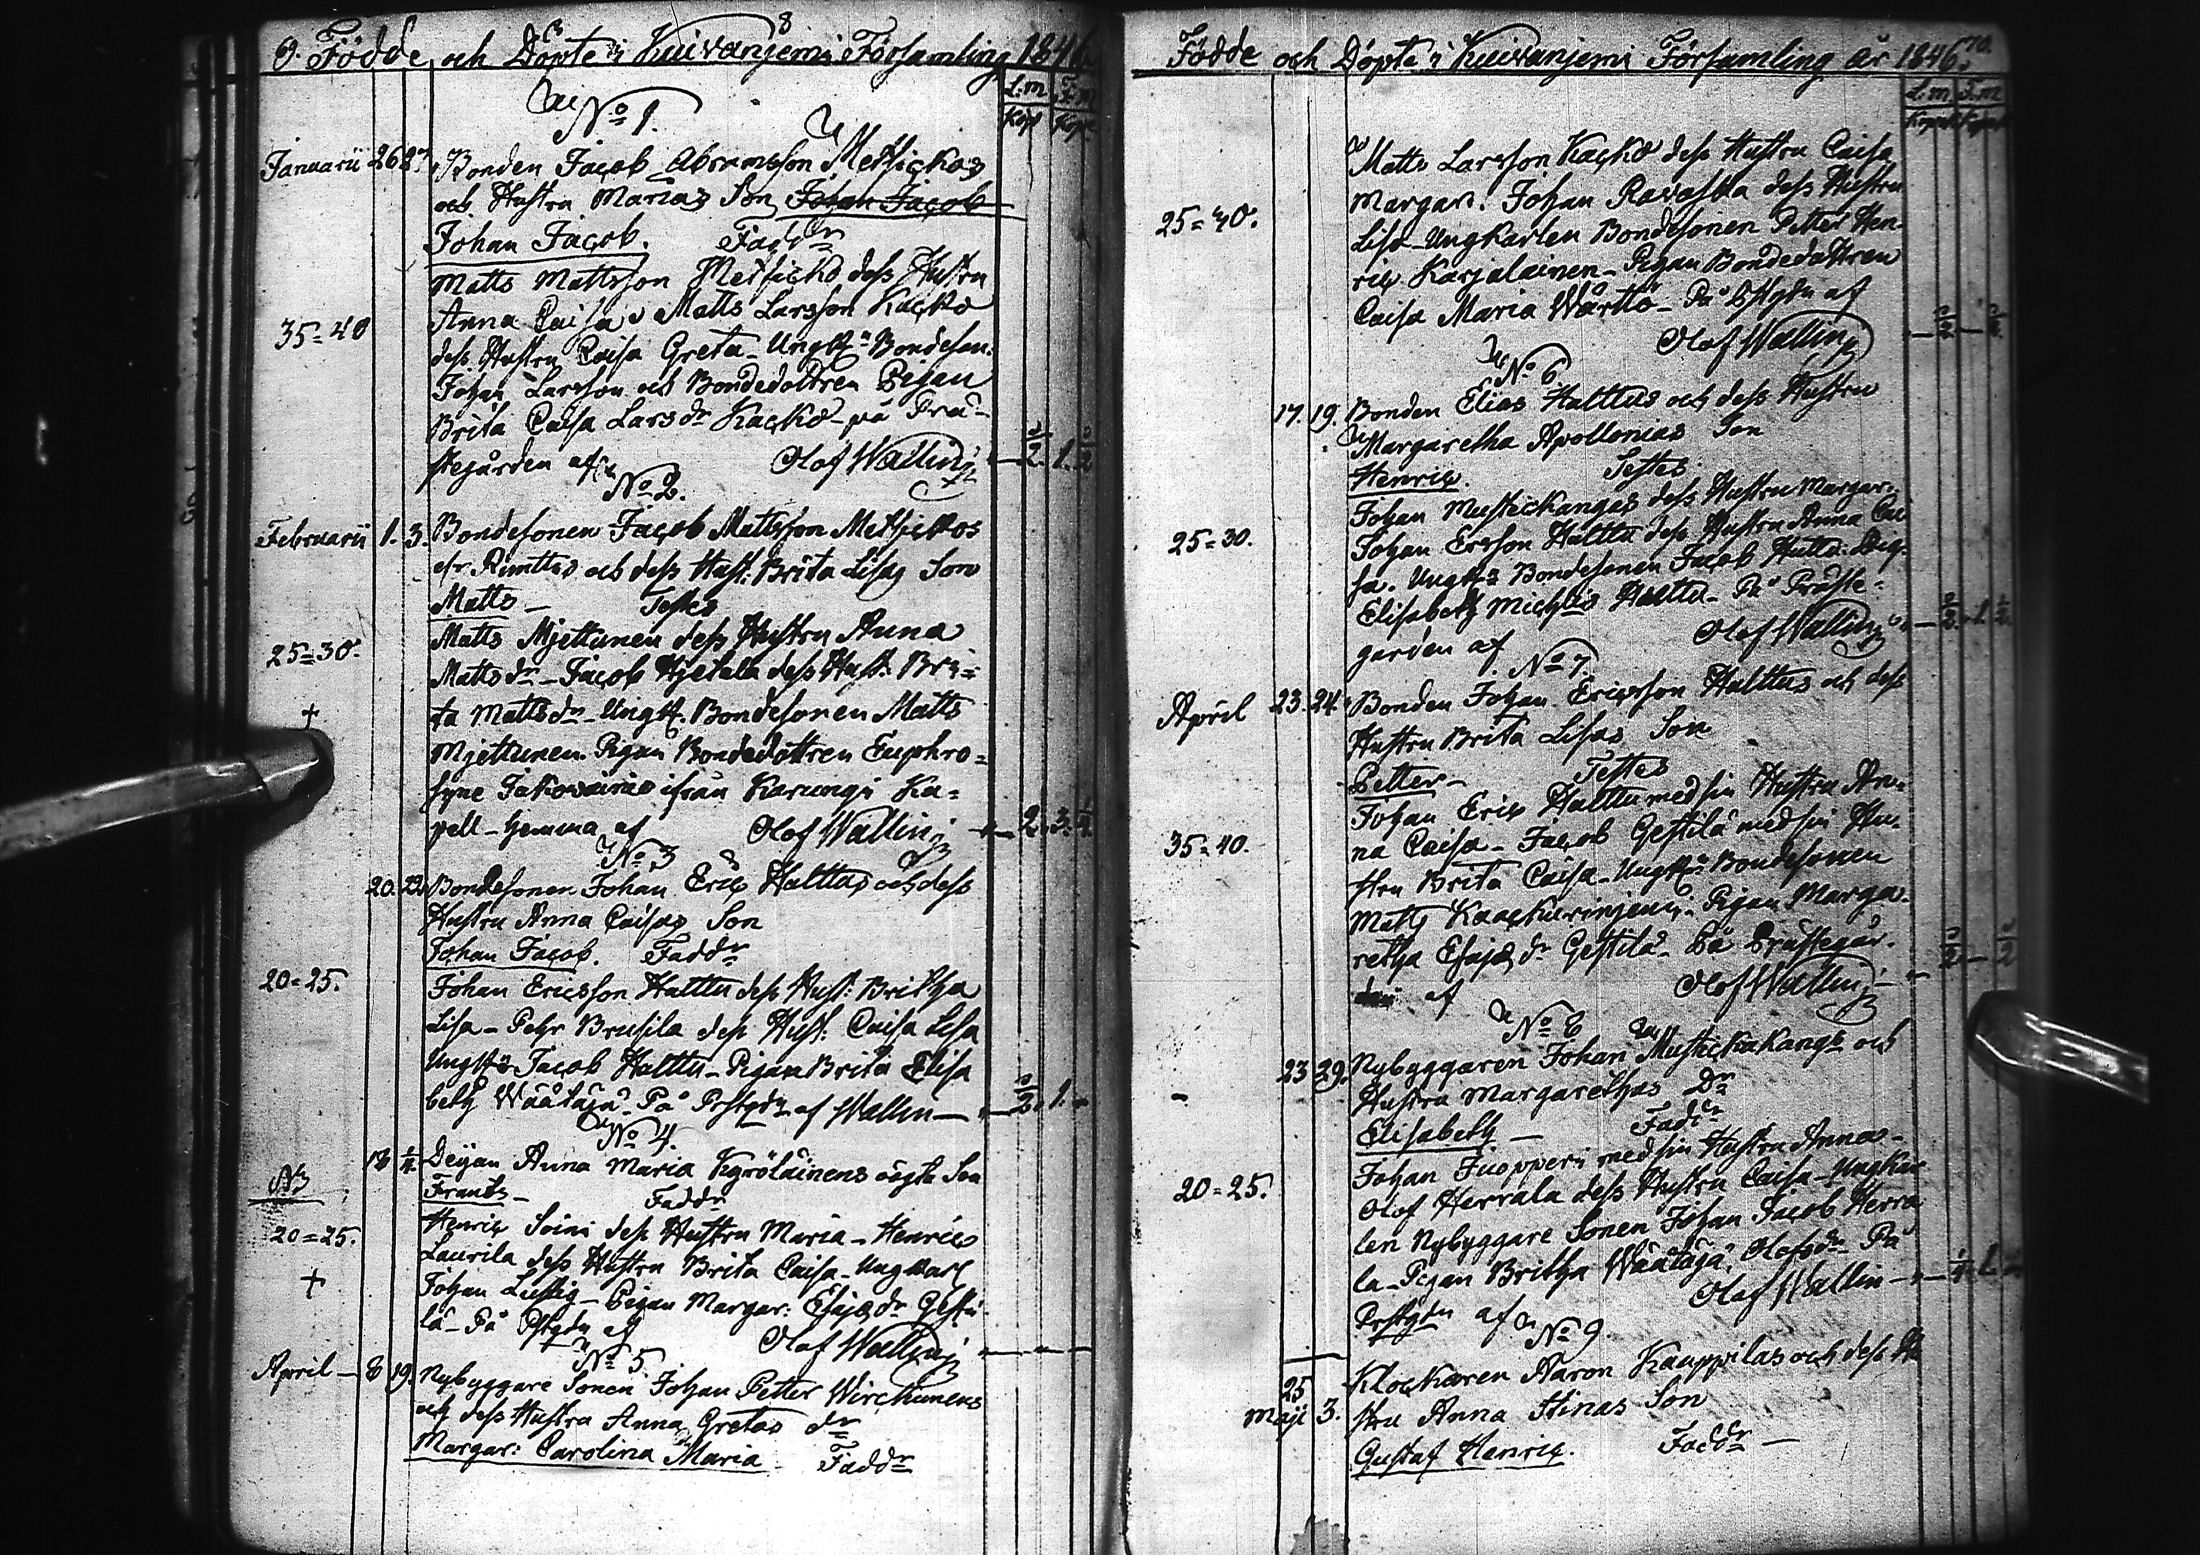 9. Födde och Döpte i Kuivanjemi Församling 1846.
L:m F:m
Kop Kop
No 1.
Januarii 26 27 Bonden Jacob Abramsson Metsickos
och Hustru Marias Son Johan Jacob
Johan Jacob. Faddr
Matts Mattsson Metsicko dess Hustru
Anna Caisa Matts Larsson Kacko
35=40
dess Hustru Caisa Greta - Ungk: Bondeson.
Johan Larsson och Bondedottren Pigan
Brita Caisa Larsdr Kacko - på Prä-
stegården af Olof Wallin 2. 1. 2
No 2.
Februarii 1. 3. Bondesonen Jacob Mattsson Metsickos
och dess Hust: Brita Lisas Son
Matts - Testes
25=30. Matts Mjettunen dess Hustru Anna
Mattsdr - Jacob Hjetala dess Hust: Bri=
† ta Mattsdr - Ungk: Bondesonen Matts
Mjettunen. Pigan Bondedottren Euphro=
syne ifrån Karungi Ka=
pell - hemma af Olof Wallin 2. 3.
No 3
20. 22. Bondesonen Johan Eric Halttus och dess
Hustru Anna Caisas Son
Johan Jacob. Faddr
20=25. Johan Ericsson Halttu dess Hust: Britha
Lisa - Pehr Brusila dess Hust: Caisa Lisa
Ungk: Jacob Halttu - Pigan Brita Elisa
beth Wäätäjä - På Prstgdn af Wallin - 1.
No 4.
18 Deijan Anna Maria Kyröläinens oägta Son
Frants - Faddr
20=25. Henric Soini dess Hustru Maria - Henric
Laurila dess Hustru Brita Caisa - Ungkarl
† Johan Lustig - Pigan Margar: Esajædr Gesti
lä - På Pstgdn af Olof Wallin
No 5
April - 8 19. Nybyggare Sonen Johan Petter Wirckunens
och dess Hustru Anna Gretas dr
Margar: Carolina Maria - Faddr
Födde och Döpte i Kuivanjemi Församling år 1846. 10.
L:m F:m
Matts Larsson Kacko dess Hustru Caisa
Margar. Johan Ravaska dess Hustru
25=40. Lisa - Ungkarlen Bondesonen Petter Hen-
ric Karjalainen - Pigan Bondedottren
Caisa Maria Warttö - På Pstgdn af
Olof Wallin
No 6
17. 19. Bonden Elias Halttus och dess Hustru
Margaretha Apollonias Son
Henric. Testes
Johan Mustickangas dess Hustru Margar.
25=30. Johan Ersson Halttu dess Hustru Anna Cai
sa. Ungk: Bondesonen Jacob Halttu. Pig.
Elisabeth Michls Halttu - På Präste-
gården af Olof Wallin
No 7
April 23. 24. Bonden Johan Ericsson Halttus och dess
Hustru Brita Lisas Son
Petter - Testes
Johan Eric Halttu med sin Hustru An=
35=40. na Caisa - Jacob Gestilä med sin Hu-
stru Brita Caisa - Ungk: Bondesonen
Matts Kaackurinjemi - Pigan Marga-
retha Esajædr Gestilä - På Prästegår-
den af Olof Wallin
No 8
23 29. Nybyggaren Johan Mustickakangs och
Hustru Margarethas Dr
Elisabeth - Faddr
Johan Juopperi med sin Hustru Anna -
20=25. Olof Herrala dess Hustru Caisa - Ungkar
len Nybyggare Sonen Johan Jacob Herra
la - Pigan Britha Wäätäjä, Olofsdr - På
Prstgdn af Olof Wallin -
No 9
25 Klockaren Aaron Kauppilas och dess Hu
Maji 3. stru Anna Stinas Son
Gustaf Henric. Faddr -